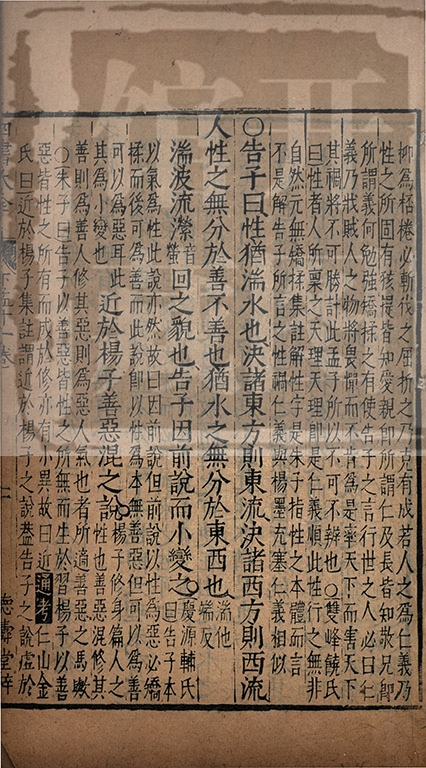 柳爲桮棬必斬伐之屈折之乃克有成若人之爲仁義乃
性之所固有孩提皆知愛親卽所謂仁及長皆知敬兄卽
所謂義何勉強矯揉之有使告子之言行世之人必曰仁
義乃戕賊人之物將畏憚而不肯爲是率天下而害天下
其禍將不可勝計此孟子所以不可不辨也○雙峰饒氏
曰性者人所稟之天理天理卽是仁義順此性行之無非
自然元無矯揉集註解性字是朱子指性之本體而言
不是解告子所言之性禍仁義與楊墨充塞仁義相似
○告子曰性猶湍水也決諸東方則東流決諸西方則西流
人性之無分於善不善也猶水之無分於東西也湍他端反
湍波流瀠音螢回之貌也告子因前說而小變之○慶源輔氏曰告子本
以氣爲性此說亦然故曰因前說但前說以性爲惡必矯
揉而後可爲善而此說卽以性爲本無善惡但可以爲善
可以爲惡耳此其爲小變也近於楊子善惡混之說○楊子修身篇人之性也善惡混修其
善則爲善人修其惡則爲惡人氣也者所適善惡之馬歟
○朱子曰告子以善惡皆性之所無而生於習楊子以善
惡皆性之所有而成於修亦有小異故曰近通考仁山金
氏曰近於楊子集註謂近於楊子之說蓋告子之說虛於
四書大全
卷
德壽堂梓